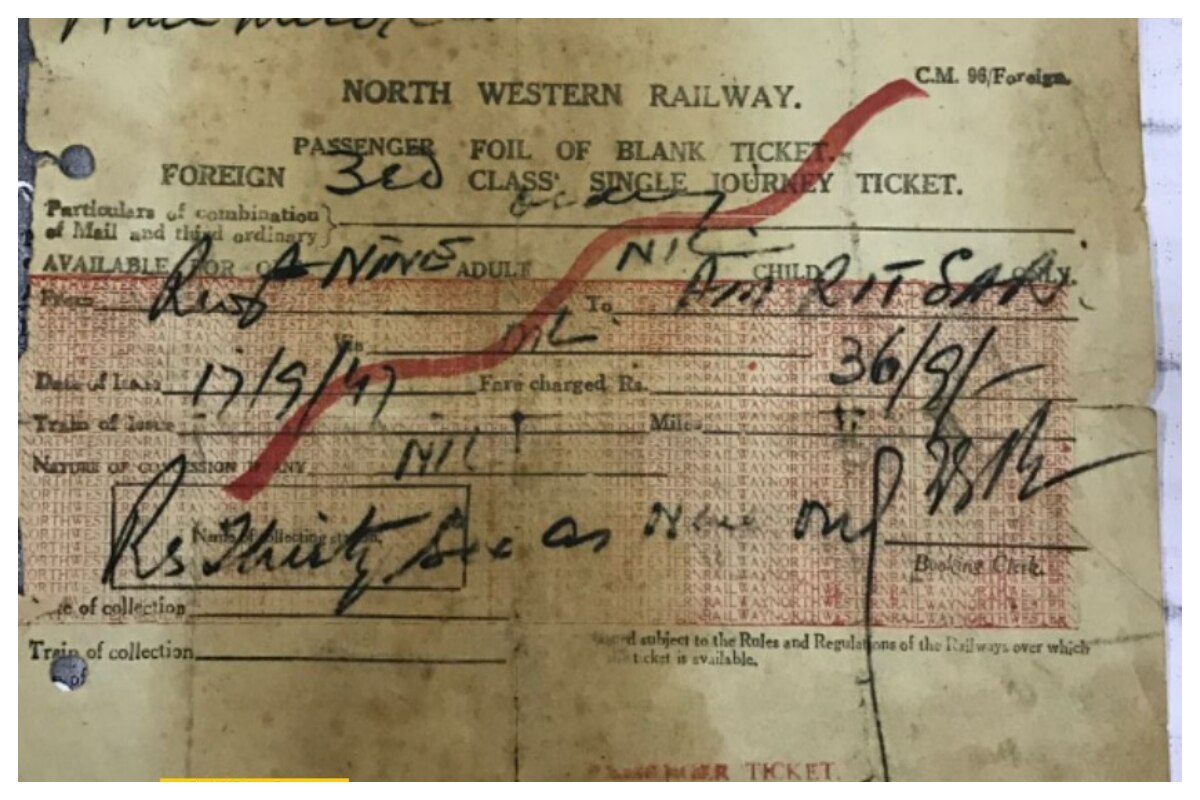 C.M. 96/Foreign.
NORTH WESTERN RAILWAY.
PASSENGER FOIL OF BLANK TICKET.
FOREIGN 3rd CLASS SINGLE JOURNEY TICKET.
Particulars of combination
of Mail and third ordinary}
AVAILABLE FOR NINE ADULT NIL CHILD ONLY.
From To AMRITSAR
Via NIL
Date of Issue 17/9/47 Fare charged Rs. 36/9/-
Train of Issue Miles
NATURE OF CONCESSION IF ANY NIL
Rs Thirty Six as Nine only
Name of collecting station.
Booking Clerk.
of collection
Train of collection
subject to the Rules and Regulations of the Railways over which
ticket is available.
PASSENGER TICKET.